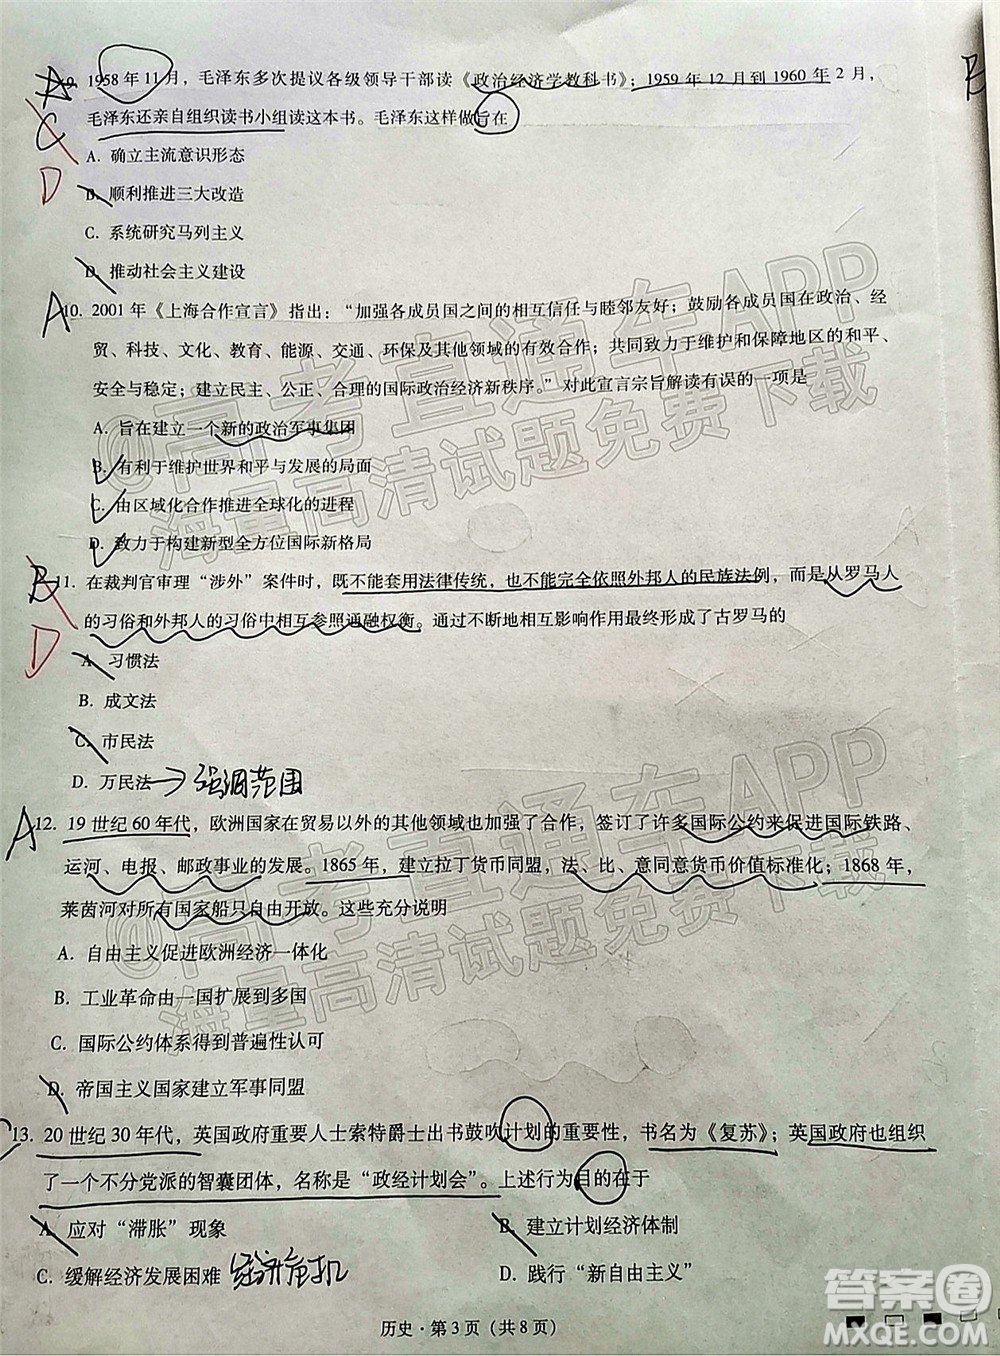 A 9. 1958 年 11 月，毛泽东多次提议各级领导干部读《政治经济学教科书》；1959 年 12 月到 1960 年 2 月， B
C 毛泽东还亲自组织读书小组读这本书。毛泽东这样做旨在
A. 确立主流意识形态
D B. 顺利推进三大改造
C. 系统研究马列主义
D. 推动社会主义建设
A 10. 2001 年《上海合作宣言》指出：“加强各成员国之间的相互信任与睦邻友好；鼓励各成员国在政治、经
贸、科技、文化、教育、能源、交通、环保及其他领域的有效合作；共同致力于维护和保障地区的和平、
安全与稳定；建立民主、公正、合理的国际政治经济新秩序。”对此宣言宗旨解读有误的一项是
A. 旨在建立一个新的政治军事集团
B. 有利于维护世界和平与发展的局面
C. 由区域化合作推进全球化的进程
D. 致力于构建新型全方位国际新格局
B 11. 在裁判官审理“涉外”案件时，既不能套用法律传统，也不能完全依照外邦人的民族法例，而是从罗马人
的习俗和外邦人的习俗中相互参照通融权衡。通过不断地相互影响作用最终形成了古罗马的
D A. 习惯法
B. 成文法
C. 市民法
D. 万民法→强调范围
A 12. 19 世纪 60 年代，欧洲国家在贸易以外的其他领域也加强了合作，签订了许多国际公约来促进国际铁路、
运河、电报、邮政事业的发展。1865 年，建立拉丁货币同盟，法、比、意同意货币价值标准化；1868 年，
莱茵河对所有国家船只自由开放。这些充分说明
A. 自由主义促进欧洲经济一体化
B. 工业革命由一国扩展到多国
C. 国际公约体系得到普遍性认可
D. 帝国主义国家建立军事同盟
C 13. 20 世纪 30 年代，英国政府重要人士索特爵士出书鼓吹计划的重要性，书名为《复苏》；英国政府也组织
了一个不分党派的智囊团体，名称是“政经计划会”。上述行为目的在于
A. 应对“滞胀”现象 B. 建立计划经济体制
C. 缓解经济发展困难 经济危机 D. 践行“新自由主义”
历史·第 3 页（共 8 页）
@高考直通车APP
海量高清试题免费下载
@高考直通车APP
海量高清试题免费下载
答案圈
MXQE.COM